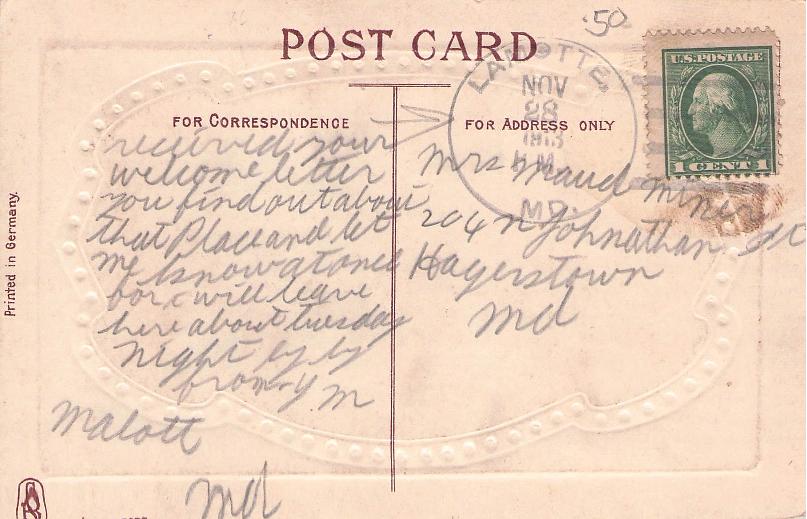 .50
POST CARD
U.S. POSTAGE
1 CENT 1
LAMOTTE,
NOV
28
1913
M.
MD.
FOR CORRESPONDENCE
FOR ADDRESS ONLY
received your
welcome letter
you find out about
that Place and let
me know at once
for i will leave
here about tuesday
night by by
from y m
Malott
Md
Mrs Maud Miner
204 n Johnathan St
Hagerstown
Md
Printed in Germany.